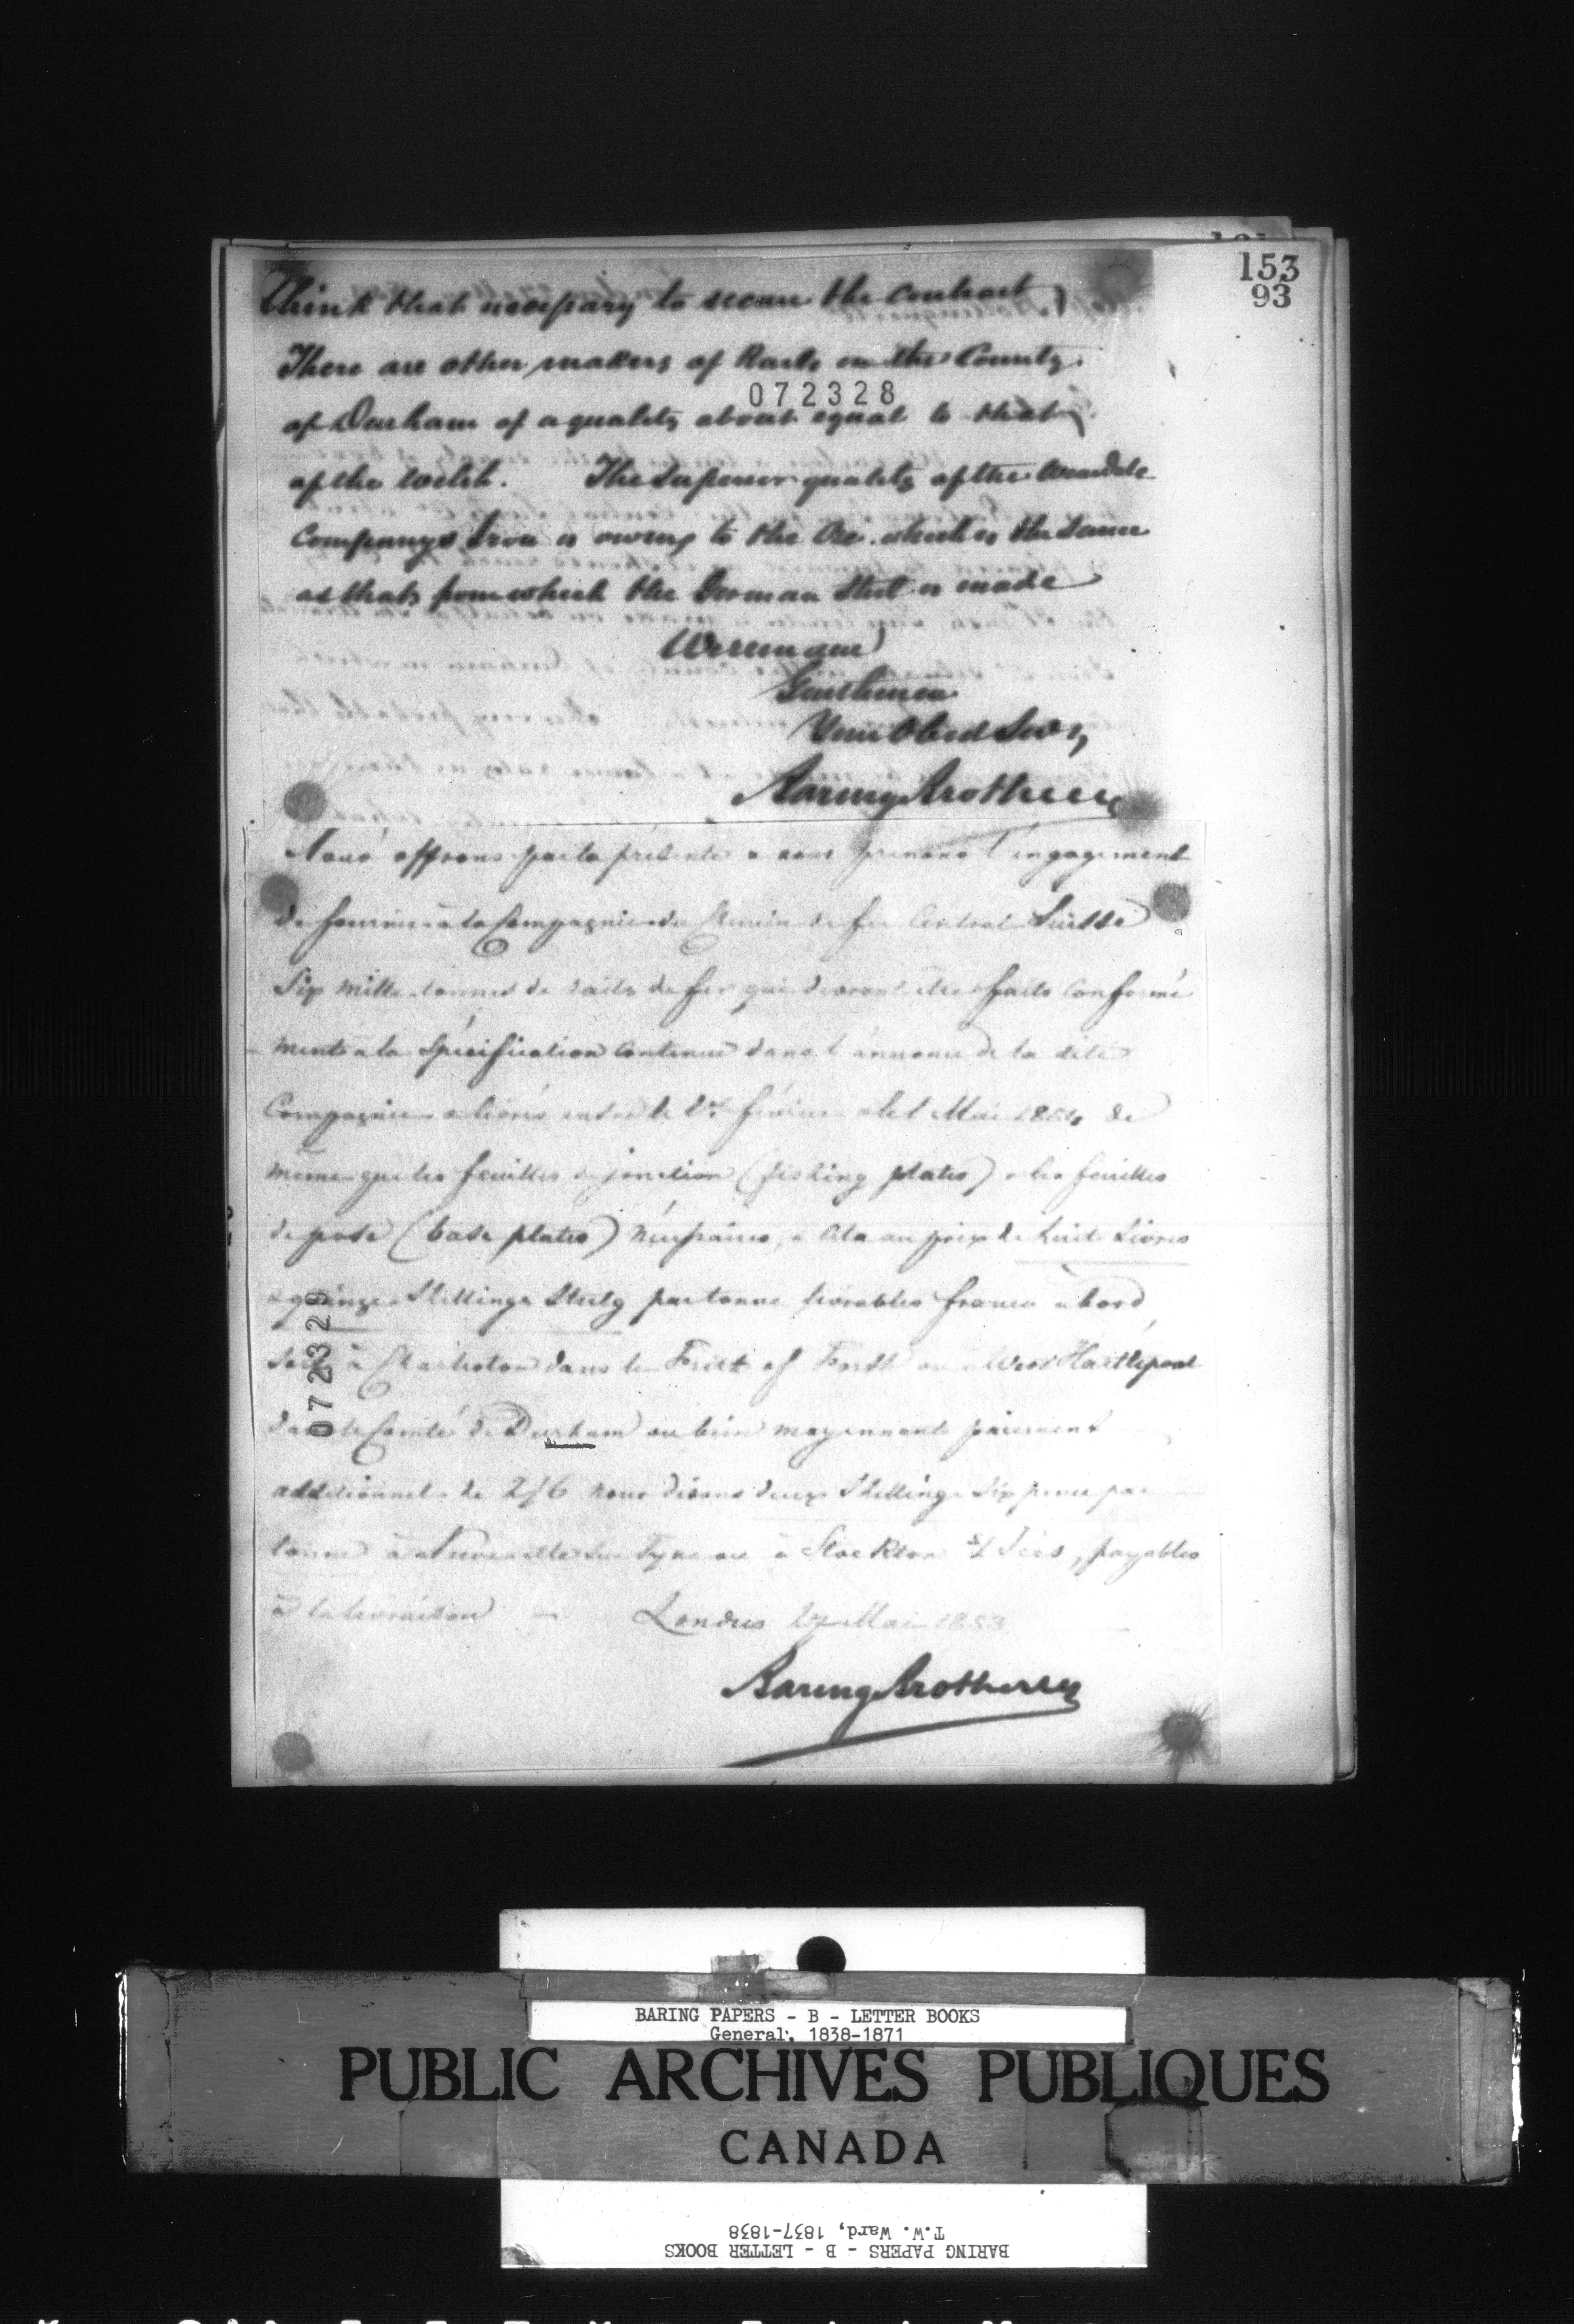 153
93
think that necessary to secure the contract
There are other makers of Rails in the County
072328
of Durham of a quality about equal to that
of the Welch. The superior quality of the Weardale
Companys Iron is owing to the Ore which is the same
as that from which the German Steel is made
We remain
Gentlemen
Your Obed Servts
Baring Brothers
Nous offrons par la présente & nous prenons l'engagement
de fournir à la Compagnie du Chemin de fer Central Suisse
Six mille tonnes de rails de fer qui devront être faits conformé
ment à la Spécification contenue dans l'annonce de la dite
Compagnie & livrés entre le 1er février & le 1 Mai 1854, de
même que les feuilles de jonction (fishing plates) & les feuilles
de pose (base plates) nécessaires, & cela au prix de huit Livres
& quinze Shillings Sterlg par tonne livrables franco à bord
072329
soit à Charleston dans le Frith of Forth ou à West Hartlepool
dans le Comté de Durham ou bien moyennant paiement
additionnel de 2/6 nous disons deux Shillings Six pence par
tonne à Newcastle sur Tyne ou à Stockton s/ Tees, payables
à la livraison
Londres 27 Mai 1853
Baring Brothers
BARING PAPERS - B - LETTER BOOKS
General, 1838-1871
PUBLIC ARCHIVES PUBLIQUES
CANADA
T.W. Ward, 1837-1838
BARING PAPERS - B - LETTER BOOKS